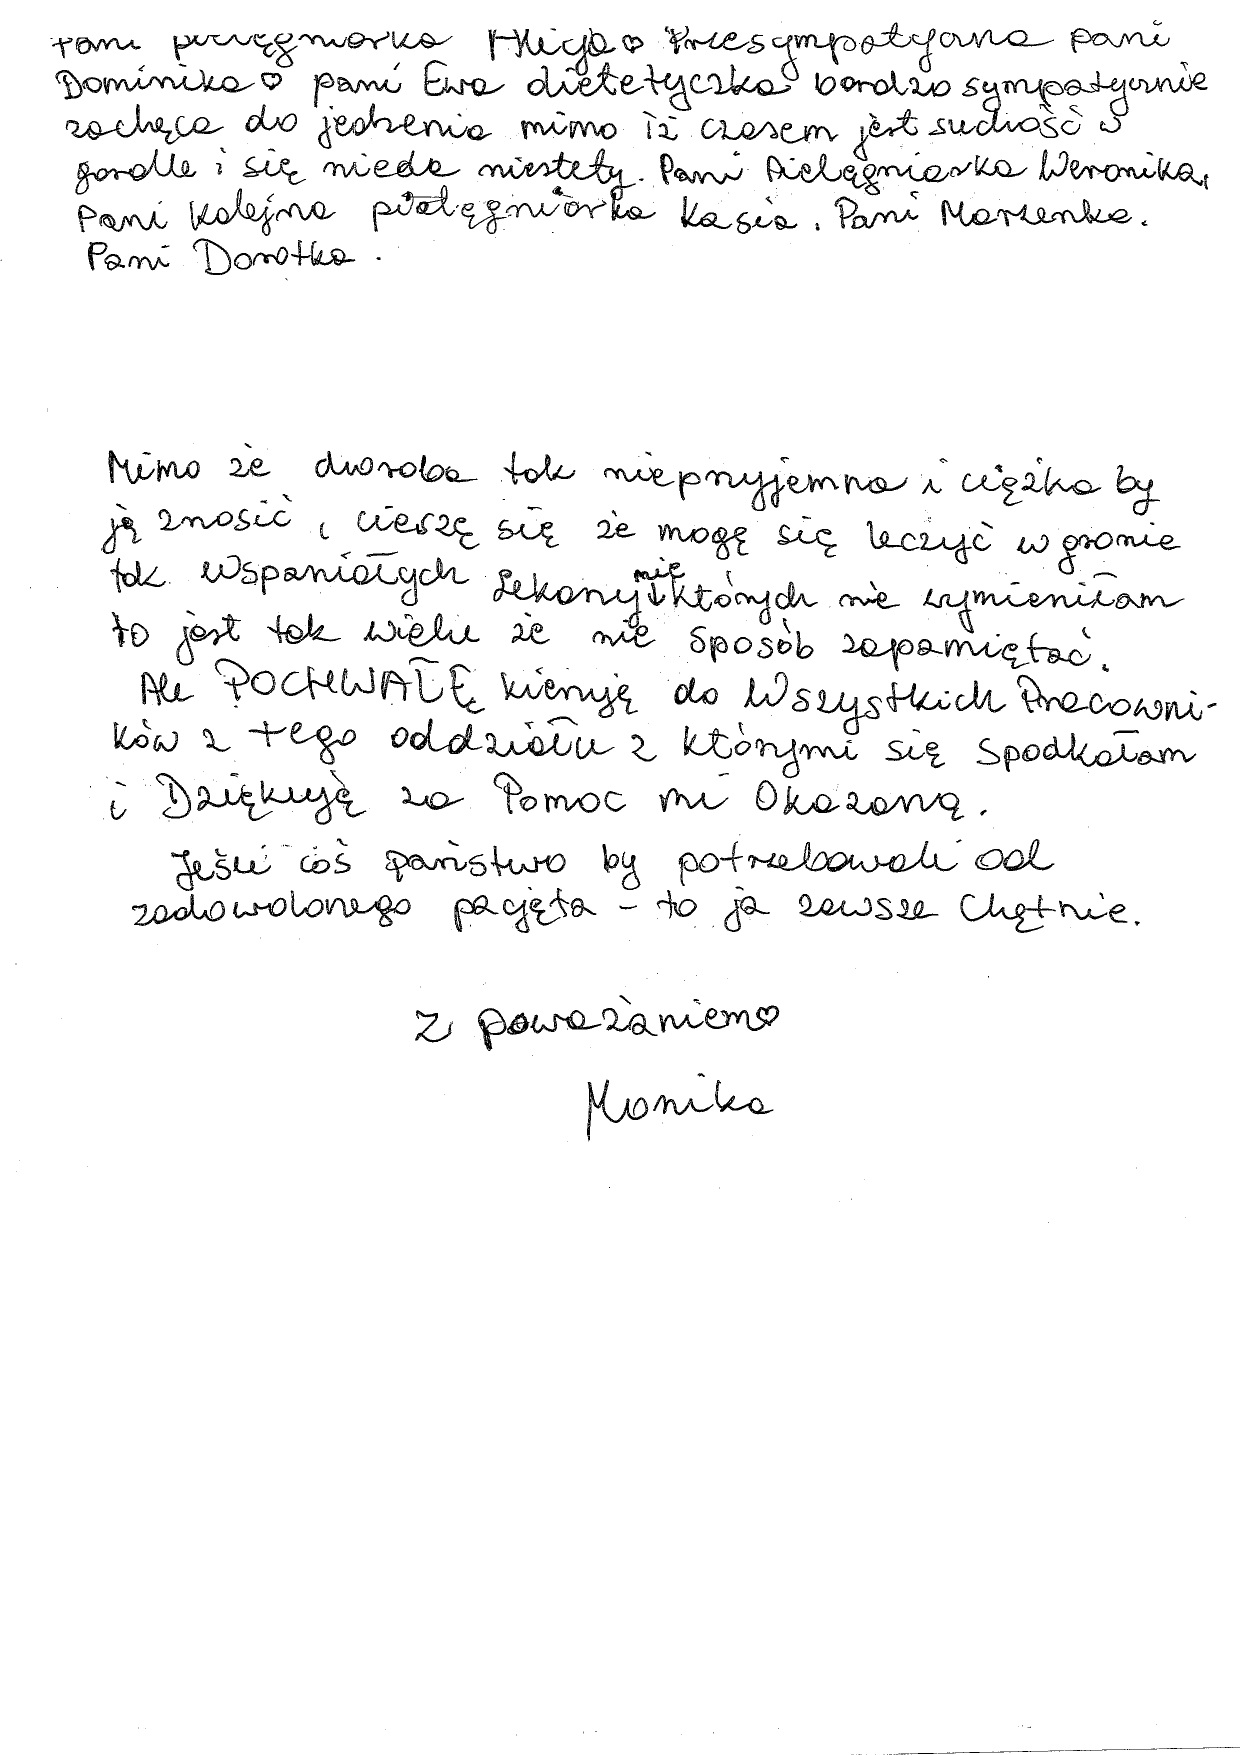 Pani pielęgniarka Alicja♡ Przesympatyczna pani
Dominika♡ pani Ewa dietetyczka bardzo sympatycznie
zachęca do jedzenia mimo iż czasem jest suchość w
gardle i się nieda niestety. Pani Pielęgniarka Weronika,
Pani kolejna pielęgniarka Kasia. Pani Marzenka.
Pani Dorotka.
Mimo że choroba tak nieprzyjemna i ciężko by
ją znosić, cieszę się że mogę się leczyć w gronie
tak wspaniałych Lekarzy których nie wymieniłam
to jest tak wielu że nie sposób zapamiętać.
Ale POCHWAŁĘ kieruję do Wszystkich Pracowni-
ków z tego oddziału z którymi się spodkałam
i Dziękuję za Pomoc mi Okazaną.
Jeśli coś państwo by potrzebowali od
zadowolonego pacjęta - to ja zawsze Chętnie.
Z poważaniem♡
Monika